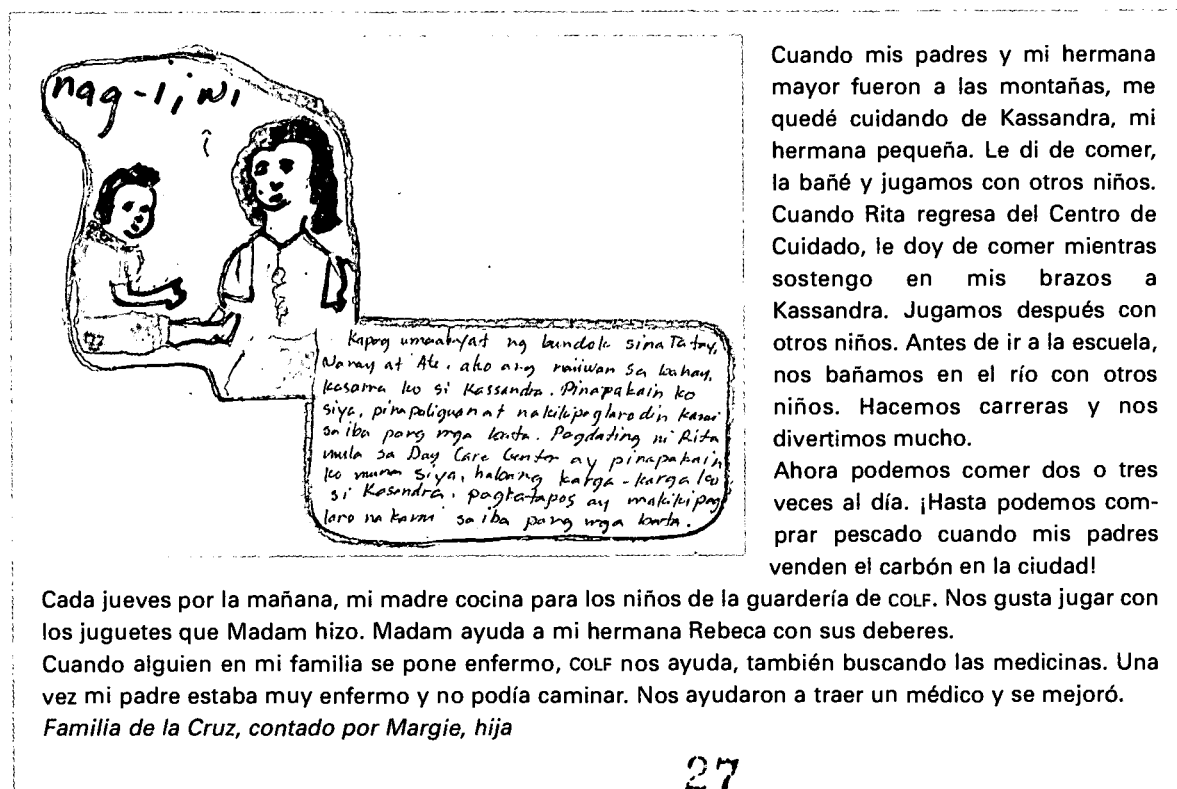 nag-iiwi
Kapag umaakyat ng bundok sina Tatay,
Nanay at Ate, ako ang naiiwan sa bahay,
kasama ko si Kassandra. Pinapakain ko
siya, pinapaliguan at nakikipaglaro din kami
sa iba pang mga bata. Pagdating ni Rita
mula sa Day Care Center ay pinapakain
ko muna siya, habang karga-karga ko
si Kasandra. pagkatapos ay makikipag
laro na kami sa iba pang mga bata.
Cuando mis padres y mi hermana
mayor fueron a las montañas, me
quedé cuidando de Kassandra, mi
hermana pequeña. Le di de comer,
la bañé y jugamos con otros niños.
Cuando Rita regresa del Centro de
Cuidado, le doy de comer mientras
sostengo en mis brazos a
Kassandra. Jugamos después con
otros niños. Antes de ir a la escuela,
nos bañamos en el río con otros
niños. Hacemos carreras y nos
divertimos mucho.
Ahora podemos comer dos o tres
veces al día. ¡Hasta podemos com-
prar pescado cuando mis padres
venden el carbón en la ciudad!
Cada jueves por la mañana, mi madre cocina para los niños de la guardería de COLF. Nos gusta jugar con
los juguetes que Madam hizo. Madam ayuda a mi hermana Rebeca con sus deberes.
Cuando alguien en mi familia se pone enfermo, COLF nos ayuda, también buscando las medicinas. Una
vez mi padre estaba muy enfermo y no podía caminar. Nos ayudaron a traer un médico y se mejoró.
Familia de la Cruz, contado por Margie, hija
27